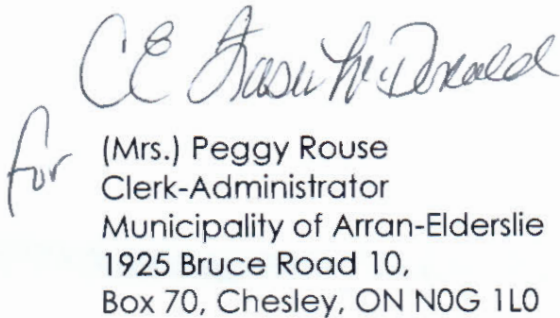 CE Fraser McDonald
for (Mrs.) Peggy Rouse
Clerk-Administrator
Municipality of Arran-Elderslie
1925 Bruce Road 10,
Box 70, Chesley, ON N0G 1L0